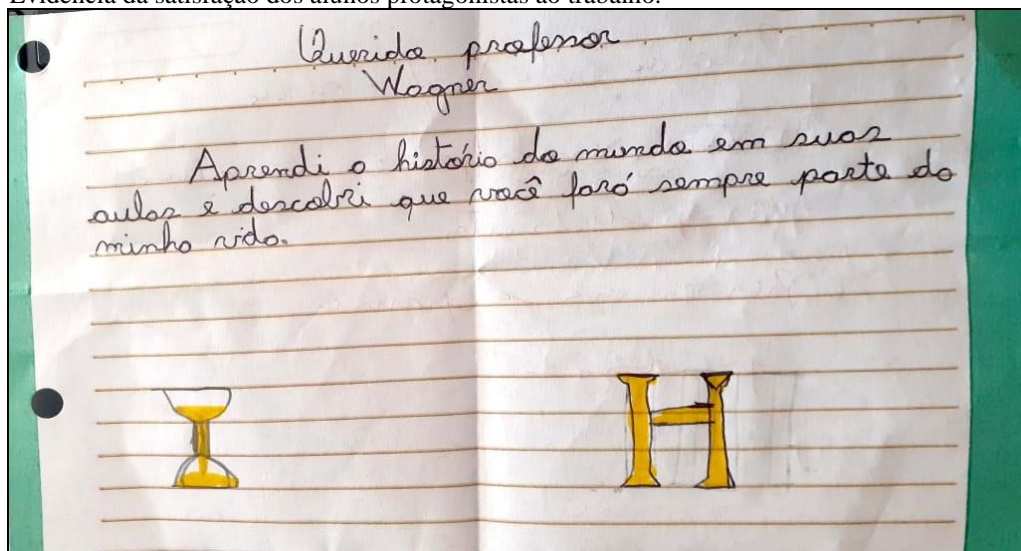 Evidência da satisfação dos alunos protagonistas ao trabalho.
Querido professor
Wagner
Aprendi a história do mundo em suas
aulas e descobri que você fará sempre parte da
minha vida.
H